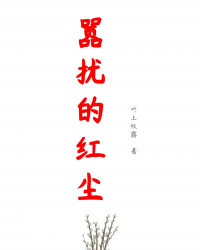 嚣扰的红尘
叶上秋露 著